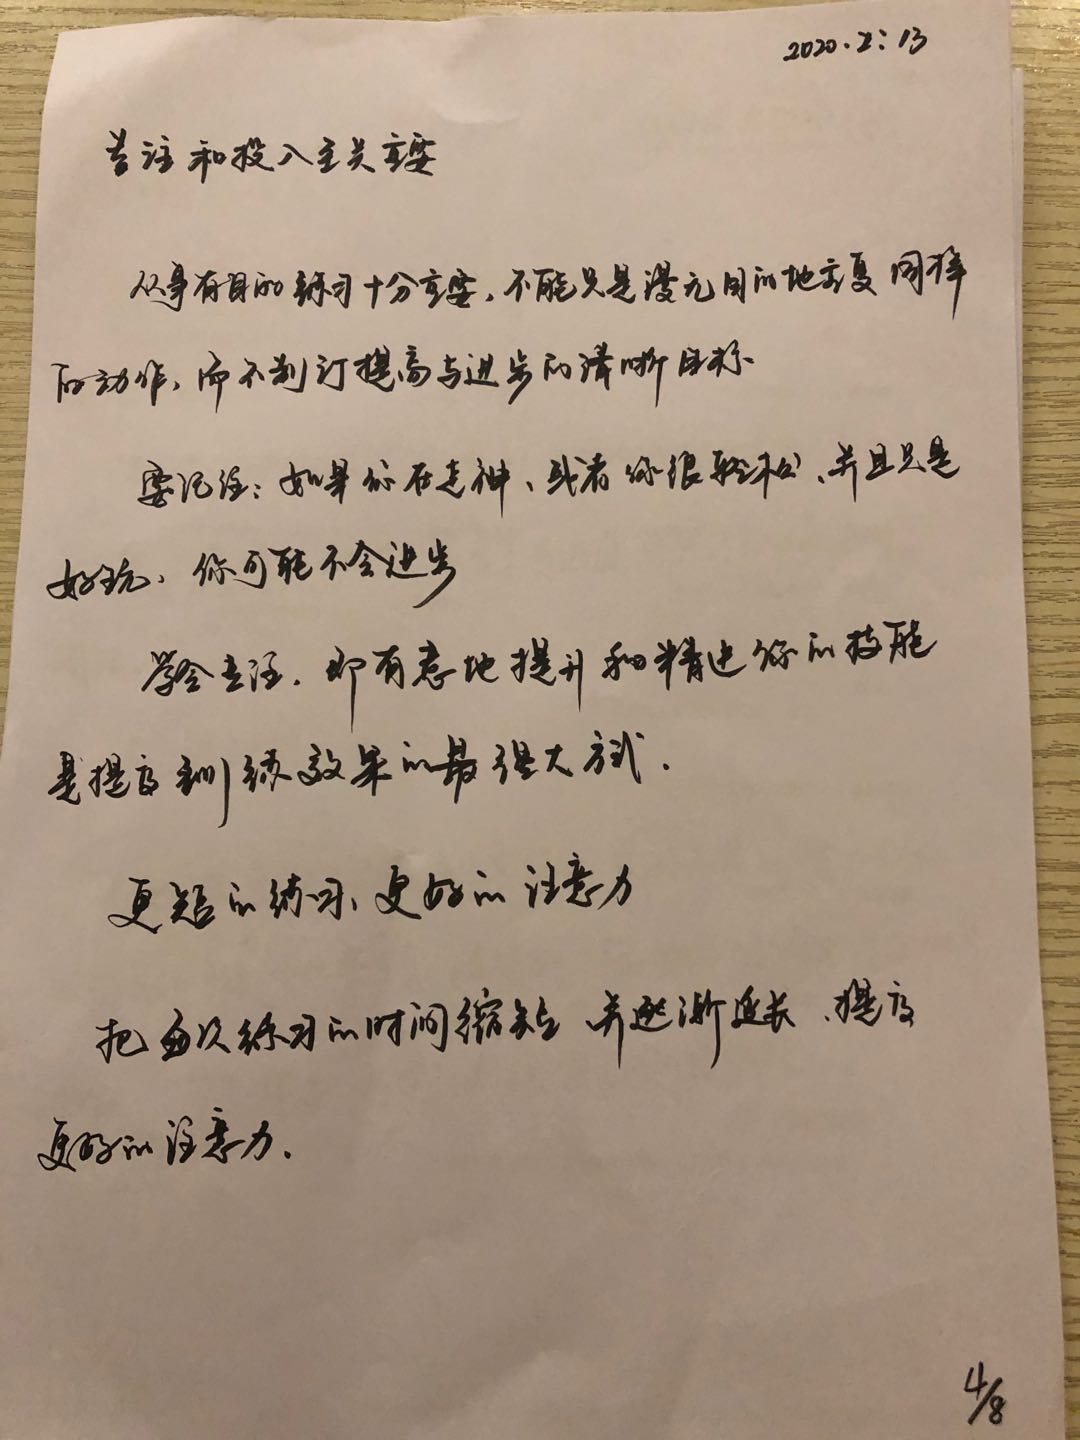 2020.2:13
专注和投入至关重要
从事有目的练习十分重要，不能只是漫无目的地重复同样
的动作，而不制订提高与进步的清晰目标
要记住：如果你在走神、或者你很轻松、并且只是
好玩、你可能不会进步
学会专注，即有意地提升和精进你的技能
是提高训练效果的最强大方式．
更短的练习、更好的注意力
把每次练习的时间缩短 并逐渐延长、提高
更好的注意力．
4/8